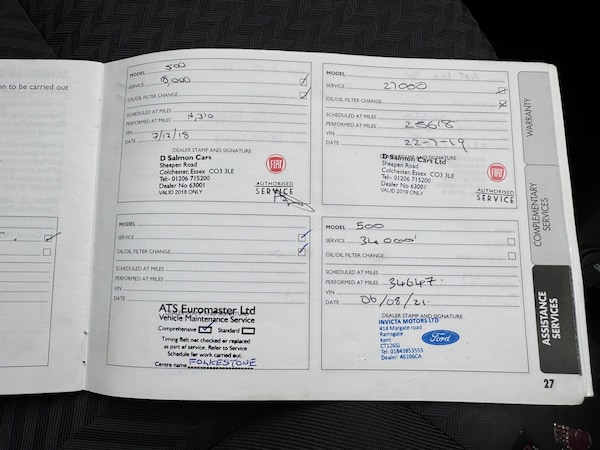 n to be carried out
MODEL 500
SERVICE 18,000
OIL/OIL FILTER CHANGE
SCHEDULED AT MILES
PERFORMED AT MILES 16,310
VIN
DATE 7/12/18
DEALER STAMP AND SIGNATURE
D Salmon Cars
Sheepen Road
Colchester, Essex CO3 3LE
Tel:- 01206 715200
Dealer No 63001
VALID 2018 ONLY
FIAT
AUTHORISED
SERVICE
MODEL
SERVICE 27000
OIL/OIL FILTER CHANGE
SCHEDULED AT MILES
PERFORMED AT MILES 25618
VIN
DATE 22-7-19
DEALER STAMP AND SIGNATURE
D Salmon Cars Ltd
Sheepen Road
Colchester, Essex CO3 3LE
Tel:- 01206 715200
Dealer No 63001
VALID 2019 ONLY
FIAT
AUTHORISED
SERVICE
MODEL
SERVICE
OIL/OIL FILTER CHANGE
SCHEDULED AT MILES
PERFORMED AT MILES
VIN
DATE
ATS Euromaster Ltd
Vehicle Maintenance Service
Comprehensive Standard
Timing Belt not checked or replaced
as part of service. Refer to Service
Schedule for work carried out.
Centre name FOLKESTONE
MODEL 500
SERVICE 34000
OIL/OIL FILTER CHANGE
SCHEDULED AT MILES
PERFORMED AT MILES 34647.
VIN
DATE 06/08/21.
DEALER STAMP AND SIGNATURE
INVICTA MOTORS LTD
414 Margate road
Ramsgate
Kent
CT126SJ
Tel: 01843853555
Dealer: 46106CA
Ford
WARRANTY
COMPLEMENTARY
SERVICES
ASSISTANCE
SERVICES
27